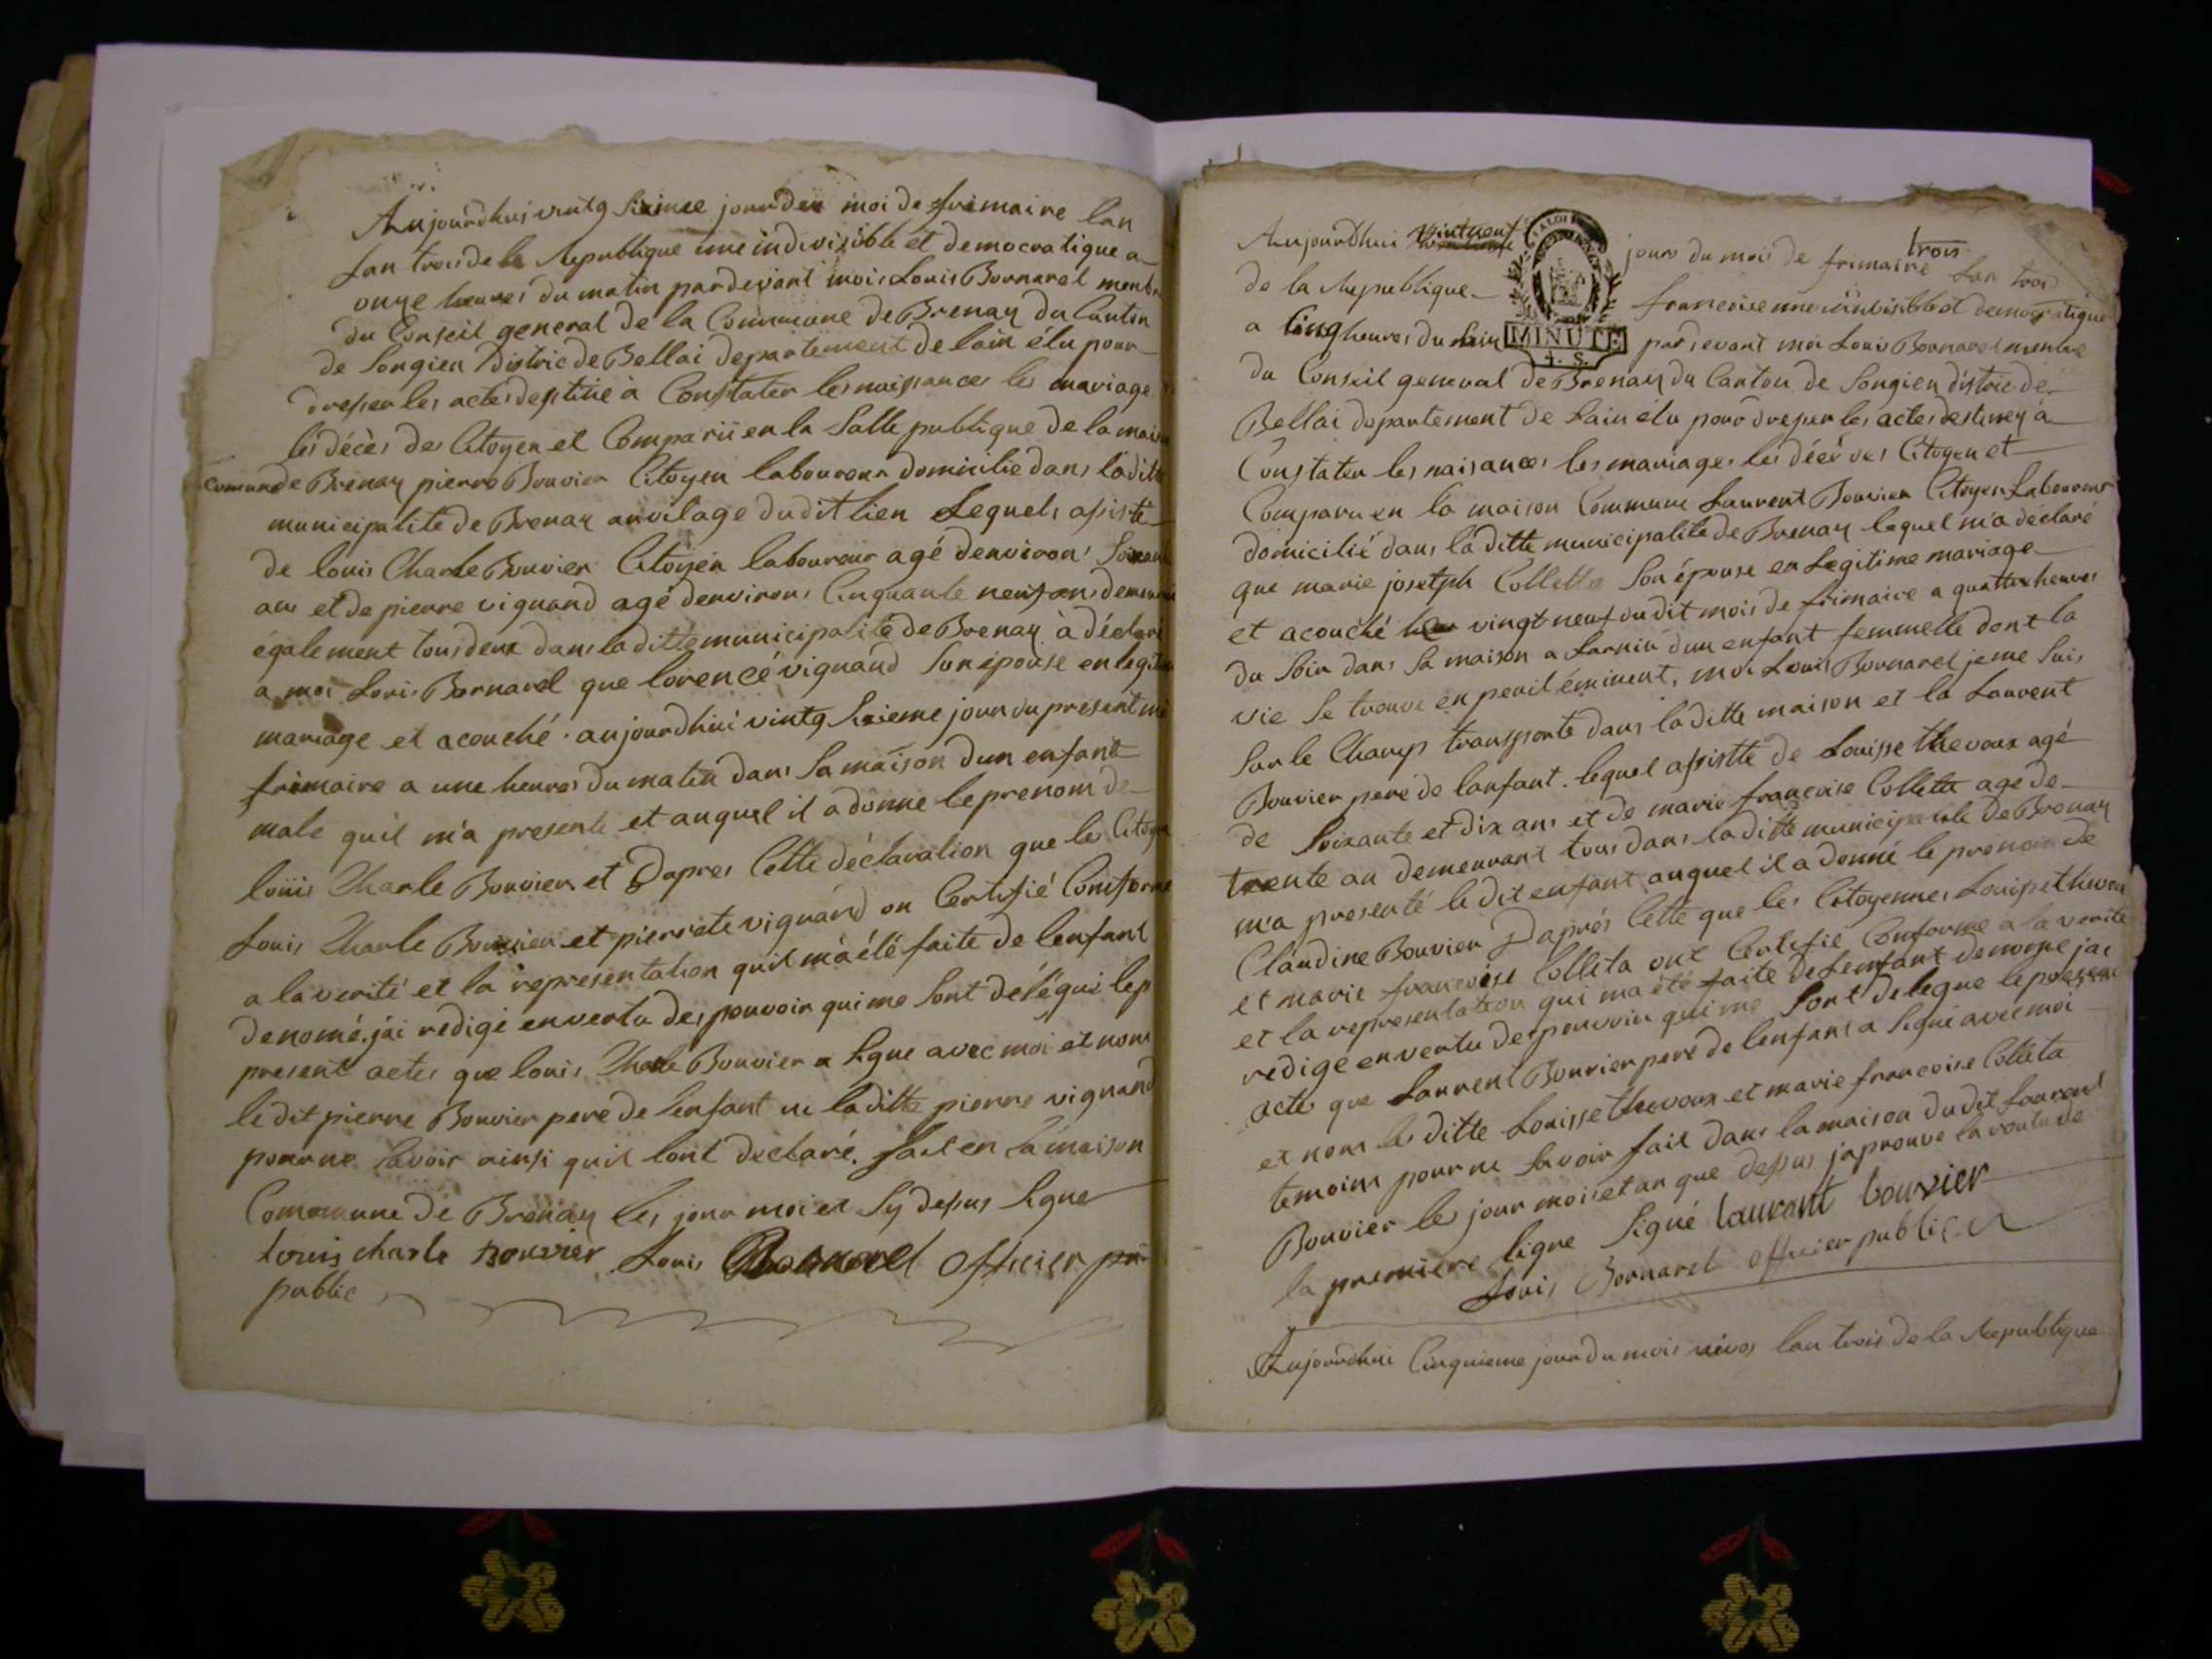 Aujourdhui vintg Sixime jour deu moi de frimaire lan
lan trois de la Republique une indivisible et democratique a
onze heures du matin pardevant moi Louis Bornarel membre
du Conseil general de la Commune de Brenaz du Canton
de Songieu District de Bellai departement de lain élu pour
dresser les actes destiné à Constater les naissances les mariage
les décès des Citoyen et Comparü en la Salle publique de la maison
Comune de Brenaz pierre Bouvier Citoyen laboureur domicilié dans laditte
municipalité de Brenaz au vilage dudit lieu Lequels assisté
de louis Charle Bouvier Citoyen laboureur agé denviron Soixante
ans et de pierre vignand agé denviron Cinquante neuf ans demeurant
également tous deux dans laditte municipalité de Brenaz à déclaré
a moi Louis Bornarel que lorencé vignand Son épouse en legitime
mariage et acouché aujourdhui vintg Sixieme jour du present moi
frimaire a une heures du matin dans Sa maison dun enfant
male quil m'a presenté et auquel il a donné le prenom de
louis Charle Bouvier et Dapres Cette déclaration que les Citoyen
Louis Charle Bouvier et pierrete vignand on Certifié Comforme
a la verité et la representation quil m'a été faite de lenfant
denomé jai redigé en vertu des pouvoir qui me Sont délégué lep
present actes que louis Charle Bouvier a Signe avec moi et nom
ledit pierre Bouvier pere de lenfant ni laditte pierre vignand
pour ne Savoir ainsi quil lont declaré. fait en la maison
Commune de Brenaz les jour moi et Sy desus Signe
Louis charle Bouvier Louis Bornarel officier pu
public
Aujourdhui vintneuf jours du mois de frimaire trois lan trois
de la Republique francoise une indivisible et democratique
a Cinq heures du Soir pardevant moi Louis Bornarel menbre
MINUTE
4. S.
du Conseil general de Brenaz du Canton de Songieu district de
Bellai departement de Lain élu pour dresser les actes destinez à
Constater les naisances les mariages les décé des Citoyen et
Comparu en la maison Commune Laurent Bouvier Citoyen Laboureur
domicilié dans laditte municipalité de Brenaz lequel m'a déclaré
que marie josetph Colletta Son épouse en Legitime mariage
et acouché vingt neuf dudit mois de frimaire a quattre heures
du Soir dans Sa maison a Larnin dun enfant femmelle dont la
vie Se trouve en peril éminent, moi Louis Bornarel je me Suis
Sur le Champ transporté dans laditte maison et la Laurent
Bouvier peré de lanfant. lequel assistté de Louisse thevoux agé
de Soixante et dix ans et de marie francoise Colletta agé de
trente an demeurant tous dans laditte municipalité de Brenaz
m'a presenté ledit enfant auquel il a donné le prenom de
Claudine Bouvier Daprés Cette que les Citoyennes Louisse thevoux
et marie francoise Colleta ont Certifié Conforme a la verité
et la representation qui ma été faite de lenfant denomé jai
redigé en vertu des pouvoir qui me Sont delegué le present
acte que Laurent Bouvier peré de lenfant a Signé avec moi
et nom les ditte Louisse thevoux et marie francoise Colleta
temoins pour ne Savoir fait dans la maison dudit Laurent
Bouvier les jour mois et an que desus japrouve la route de
la premiere ligne Signé laurant bouvier
Louis Bornarel officier public
Aujourdhui Cinquieme jour du mois nivos lan trois de la Republique